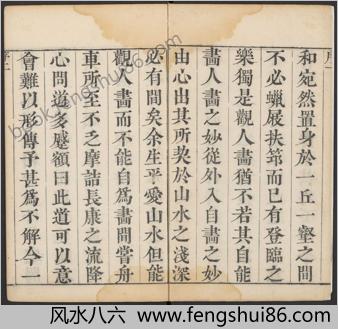 和宛然置身於一丘一壑之間
不必蠟屐扶筇而已有登臨之
樂獨是觀人畵猶不若其自能
畵人畵之妙從外入自畵之妙
由心出其所契於山水之淺深
必有間矣余生平愛山水但能
觀人畵而不能自爲畵間嘗舟
車所至不乏摩詰長康之流降
心問道多蹙額曰此道可以意
會難以形傳予甚爲不解今一
风水八六 www.fengshui86.com